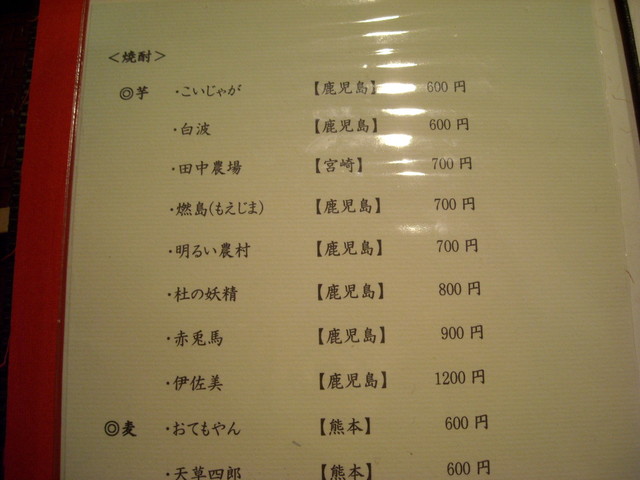 ＜焼酎＞
◎芋 ・こいじゃが 【鹿児島】 600円
・白波 【鹿児島】 600円
・田中農場 【宮崎】 700円
・燃島(もえじま) 【鹿児島】 700円
・明るい農村 【鹿児島】 700円
・杜の妖精 【鹿児島】 800円
・赤兎馬 【鹿児島】 900円
・伊佐美 【鹿児島】 1200円
◎麦 ・おてもやん 【熊本】 600円
・天草四郎 【熊本】 600円